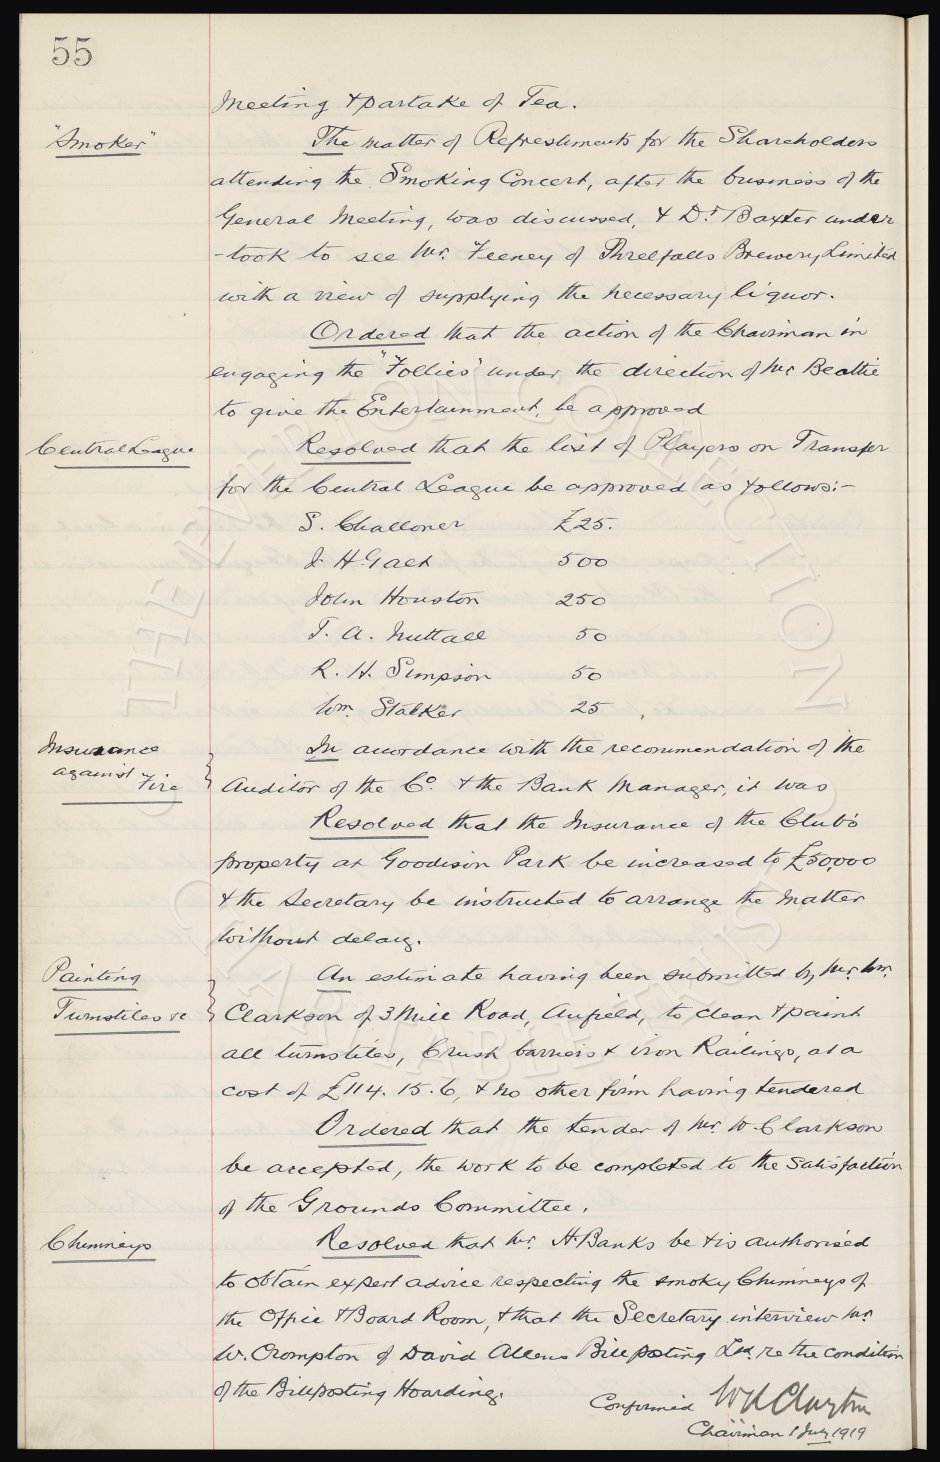 55
Meeting & partake of Tea.
"Smoker"
The matter of Refreshments for the Shareholders
attending the Smoking Concert, after the business of the
General Meeting, was discussed, & Dr. Baxter under
-took to see Mr. Feeney of Threlfalls Brewery Limited
with a view of supplying the necessary liquor.
Ordered that the action of the Chairman in
engaging the "Follies" under the direction of Mr Beattie
to give the Entertainment, be approved
Central League
Resolved that the list of Players on Transfer
for the Central League be approved as follows:-
S. Challoner £25.
J. H. Galt 500
John Houston 250
T. A. Nuttall 50
R. H. Simpson 50
Wm. Stalker 25
Insurance
against Fire
In accordance with the recommendation of the
Auditor of the Co. & the Bank Manager, it was
Resolved that the Insurance of the Club's
property at Goodison Park be increased to £50,000
& the Secretary be instructed to arrange the Matter
without delay.
Painting
Turnstiles &c
An estimate having been submitted by Mr. Wm.
Clarkson of 3 Mill Road, Anfield, to clean & paint
all turnstiles, Crush barriers & iron Railings, at a
cost of £114. 15. 6, & no other firm having tendered
Ordered that the tender of Mr. W. Clarkson
be accepted, the work to be completed to the Satisfaction
of the Grounds Committee.
Chimneys
Resolved that Mr. H Banks be & is authorised
to obtain expert advice respecting the smoky Chimneys of
the Office & Board Room, & that the Secretary interview Mr.
W. Crompton of David Allens Billposting Ltd. re the condition
of the Billposting Hoarding.
Confirmed W R Clayton
Chairman 1 July 1919
THE EVERTON COLLECTION
CHARITABLE TRUST